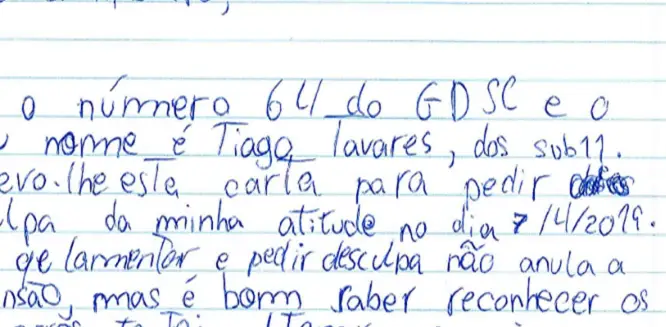 o número 64 do GDSC e o
nome é Tiago Tavares, dos sub11.
evo-lhe esta carta para pedir
lpa da minha atitude no dia 7/4/2019.
ge lamentar e pedir desculpa não anula a
nsão, mas é bom saber reconhecer os